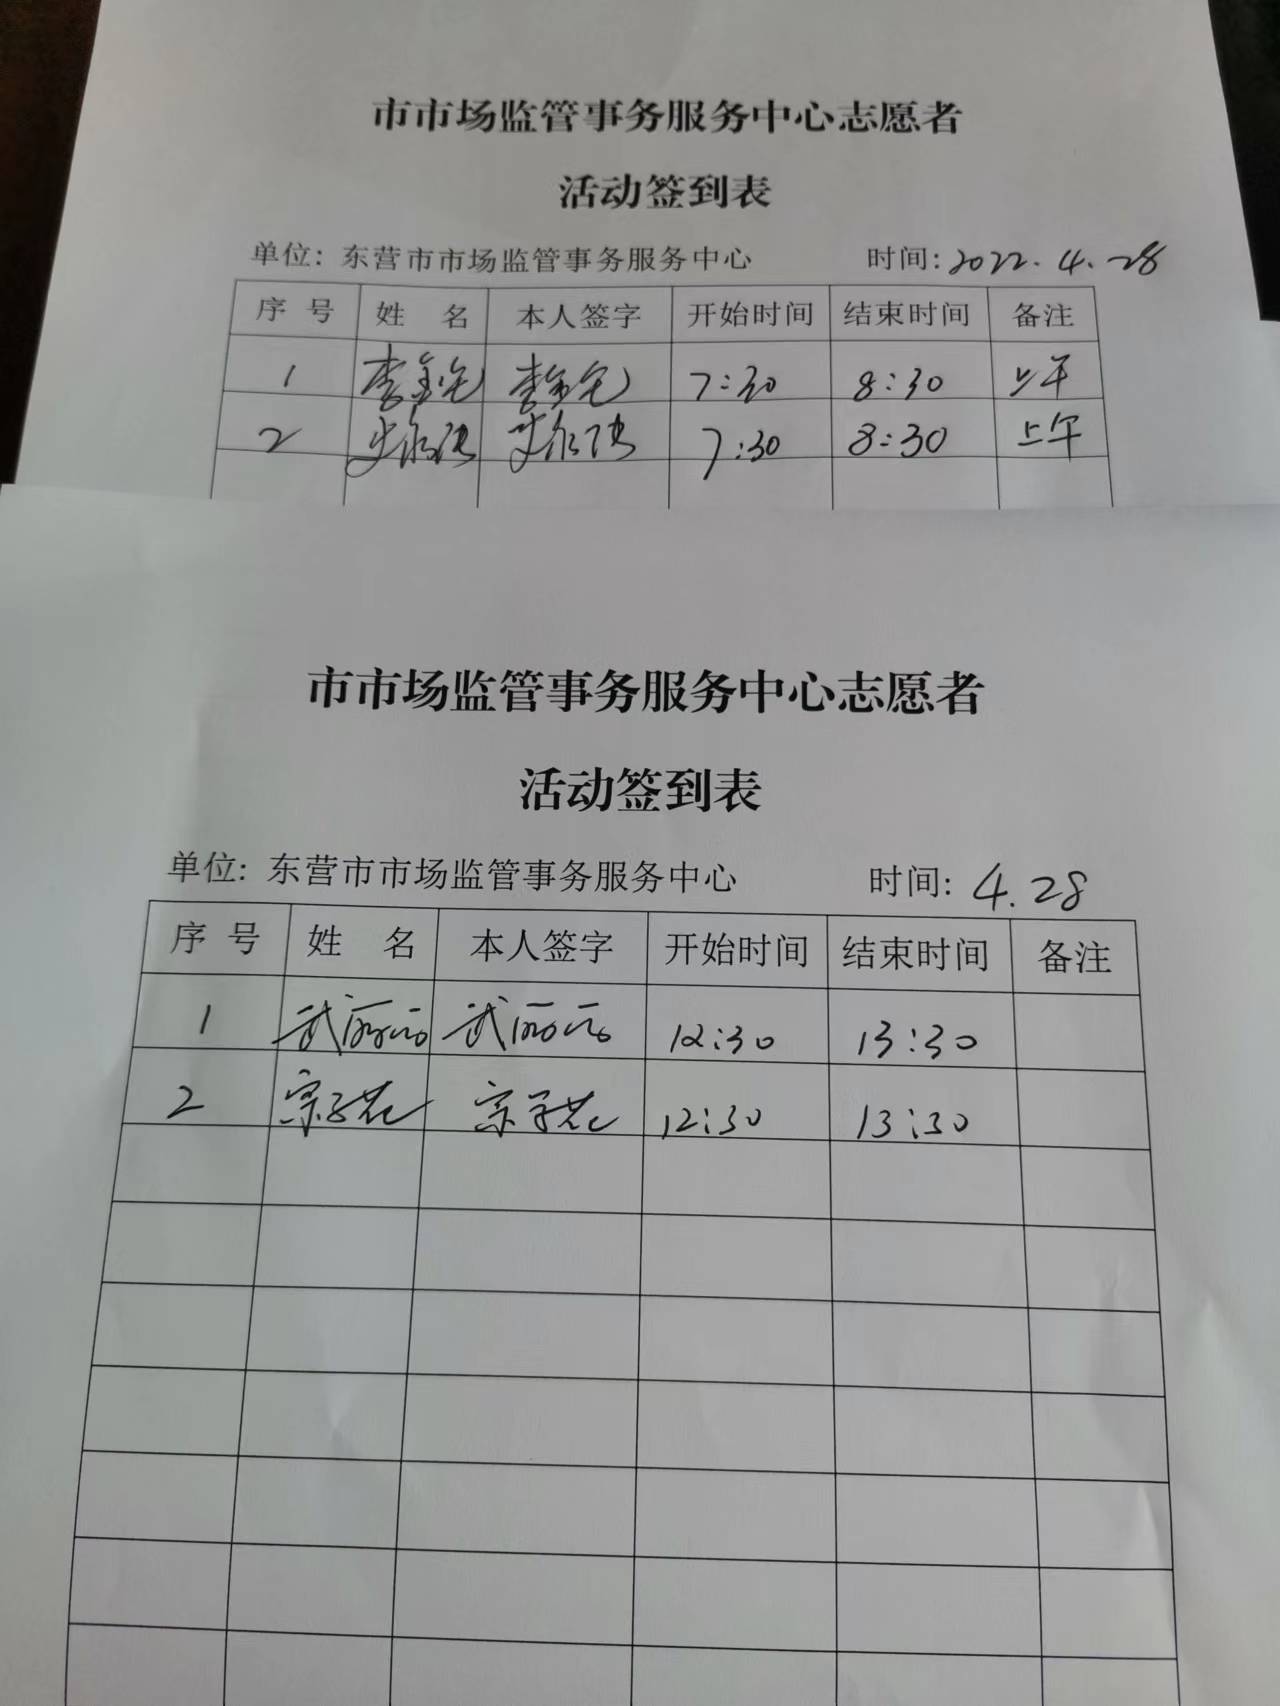 市市场监管事务服务中心志愿者
活动签到表
单位：东营市市场监管事务服务中心 时间：2022.4.28
序号 姓名 本人签字 开始时间 结束时间 备注
1 李 李 7:30 8:30 上午
2 7:30 8:30 上午
市市场监管事务服务中心志愿者
活动签到表
单位：东营市市场监管事务服务中心 时间：4.28
序号 姓名 本人签字 开始时间 结束时间 备注
1 武丽 武丽 12:30 13:30
2 宗子花 宗子花 12:30 13:30